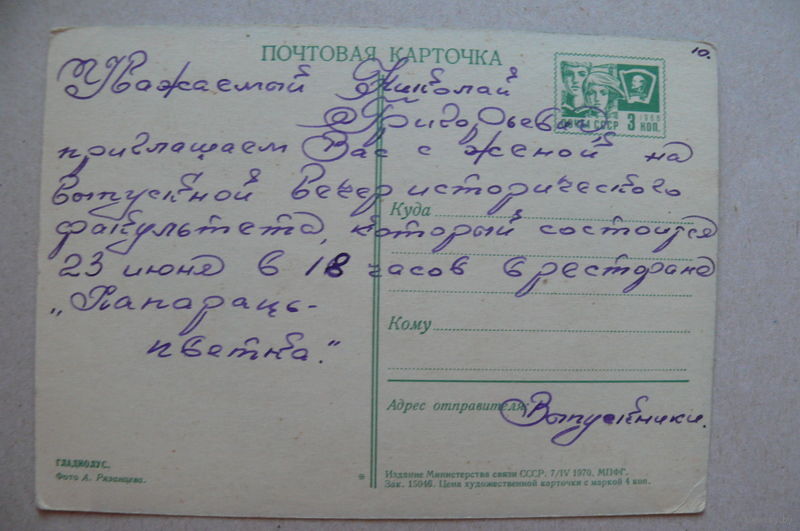 ПОЧТОВАЯ КАРТОЧКА
10.
Уважаемый Николай
Григорьевич
приглашаем Вас с женой на
выпускной вечер исторического
факультета, который состоится
23 июня в 18 часов в ресторане
„Папараць-
кветка."
Выпускники.
ПОЧТА СССР 3 КОП.
1966
Куда
Кому
Адрес отправителя:
ГЛАДИОЛУС.
Фото А. Рязанцева.
Издание Министерства связи СССР. 7/IV 1970. МПФГ.
Зак. 15046. Цена художественной карточки с маркой 4 коп.